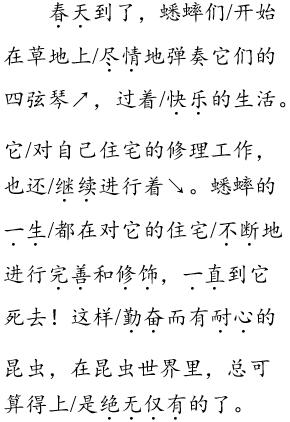 春天到了，蟋蟀们/开始
在草地上/尽情地弹奏它们的
四弦琴↗，过着/快乐的生活。
它/对自己住宅的修理工作，
也还/继续进行着↘。蟋蟀的
一生/都在对它的住宅/不断地
进行完善和修饰，一直到它
死去！这样/勤奋而有耐心的
昆虫，在昆虫世界里，总可
算得上/是绝无仅有的了。